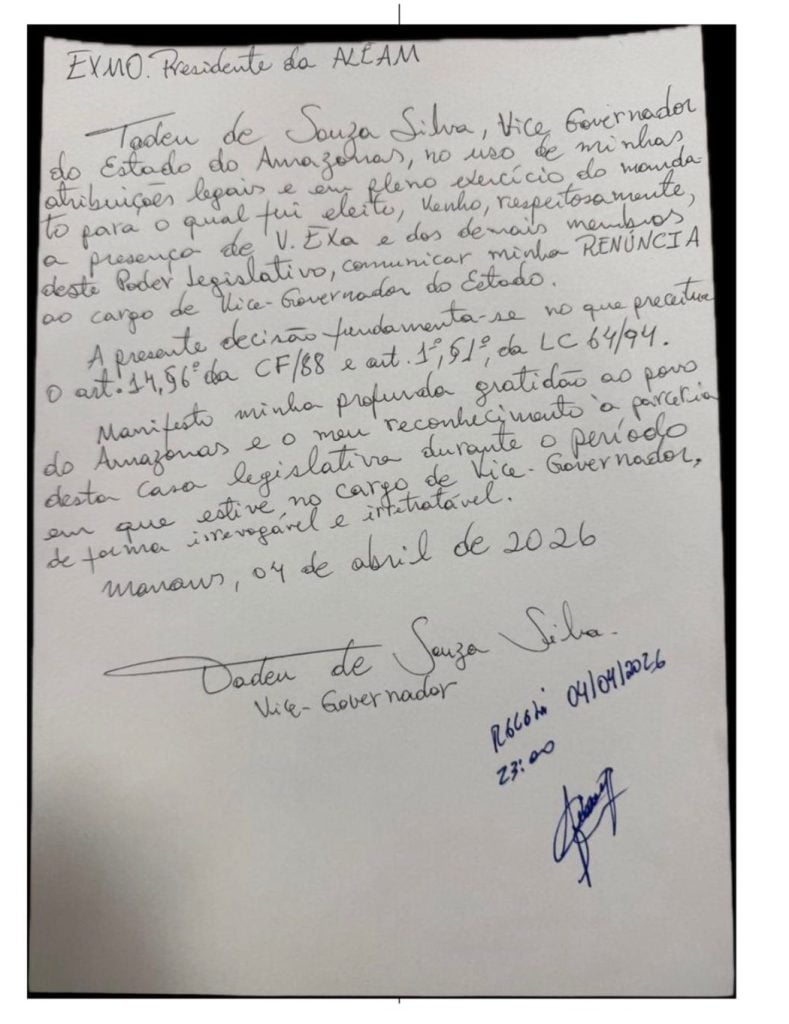 EXMO. Presidente da ALEAM
Tadeu de Souza Silva, Vice Governador
do Estado do Amazonas, no uso de minhas
atribuições legais e em pleno exercício do manda-
to para o qual fui eleito, venho, respeitosamente,
a presença de V. EXa e dos demais membros
deste Poder Legislativo, comunicar minha RENÚNCIA
ao cargo de Vice-Governador do Estado.
A presente decisão fundamenta-se no que preceitua
o art. 14, §6º da CF/88 e art. 1º, §1º, da LC 64/94.
Manifesto minha profunda gratidão ao povo
do Amazonas e o meu reconhecimento à parceria
desta casa legislativa durante o período
em que estive no cargo de Vice-Governador,
de forma irrevogável e irretratável.
Manaus, 04 de abril de 2026
Tadeu de Souza Silva.
Vice-Governador
Recebi 04/04/2026
23:00